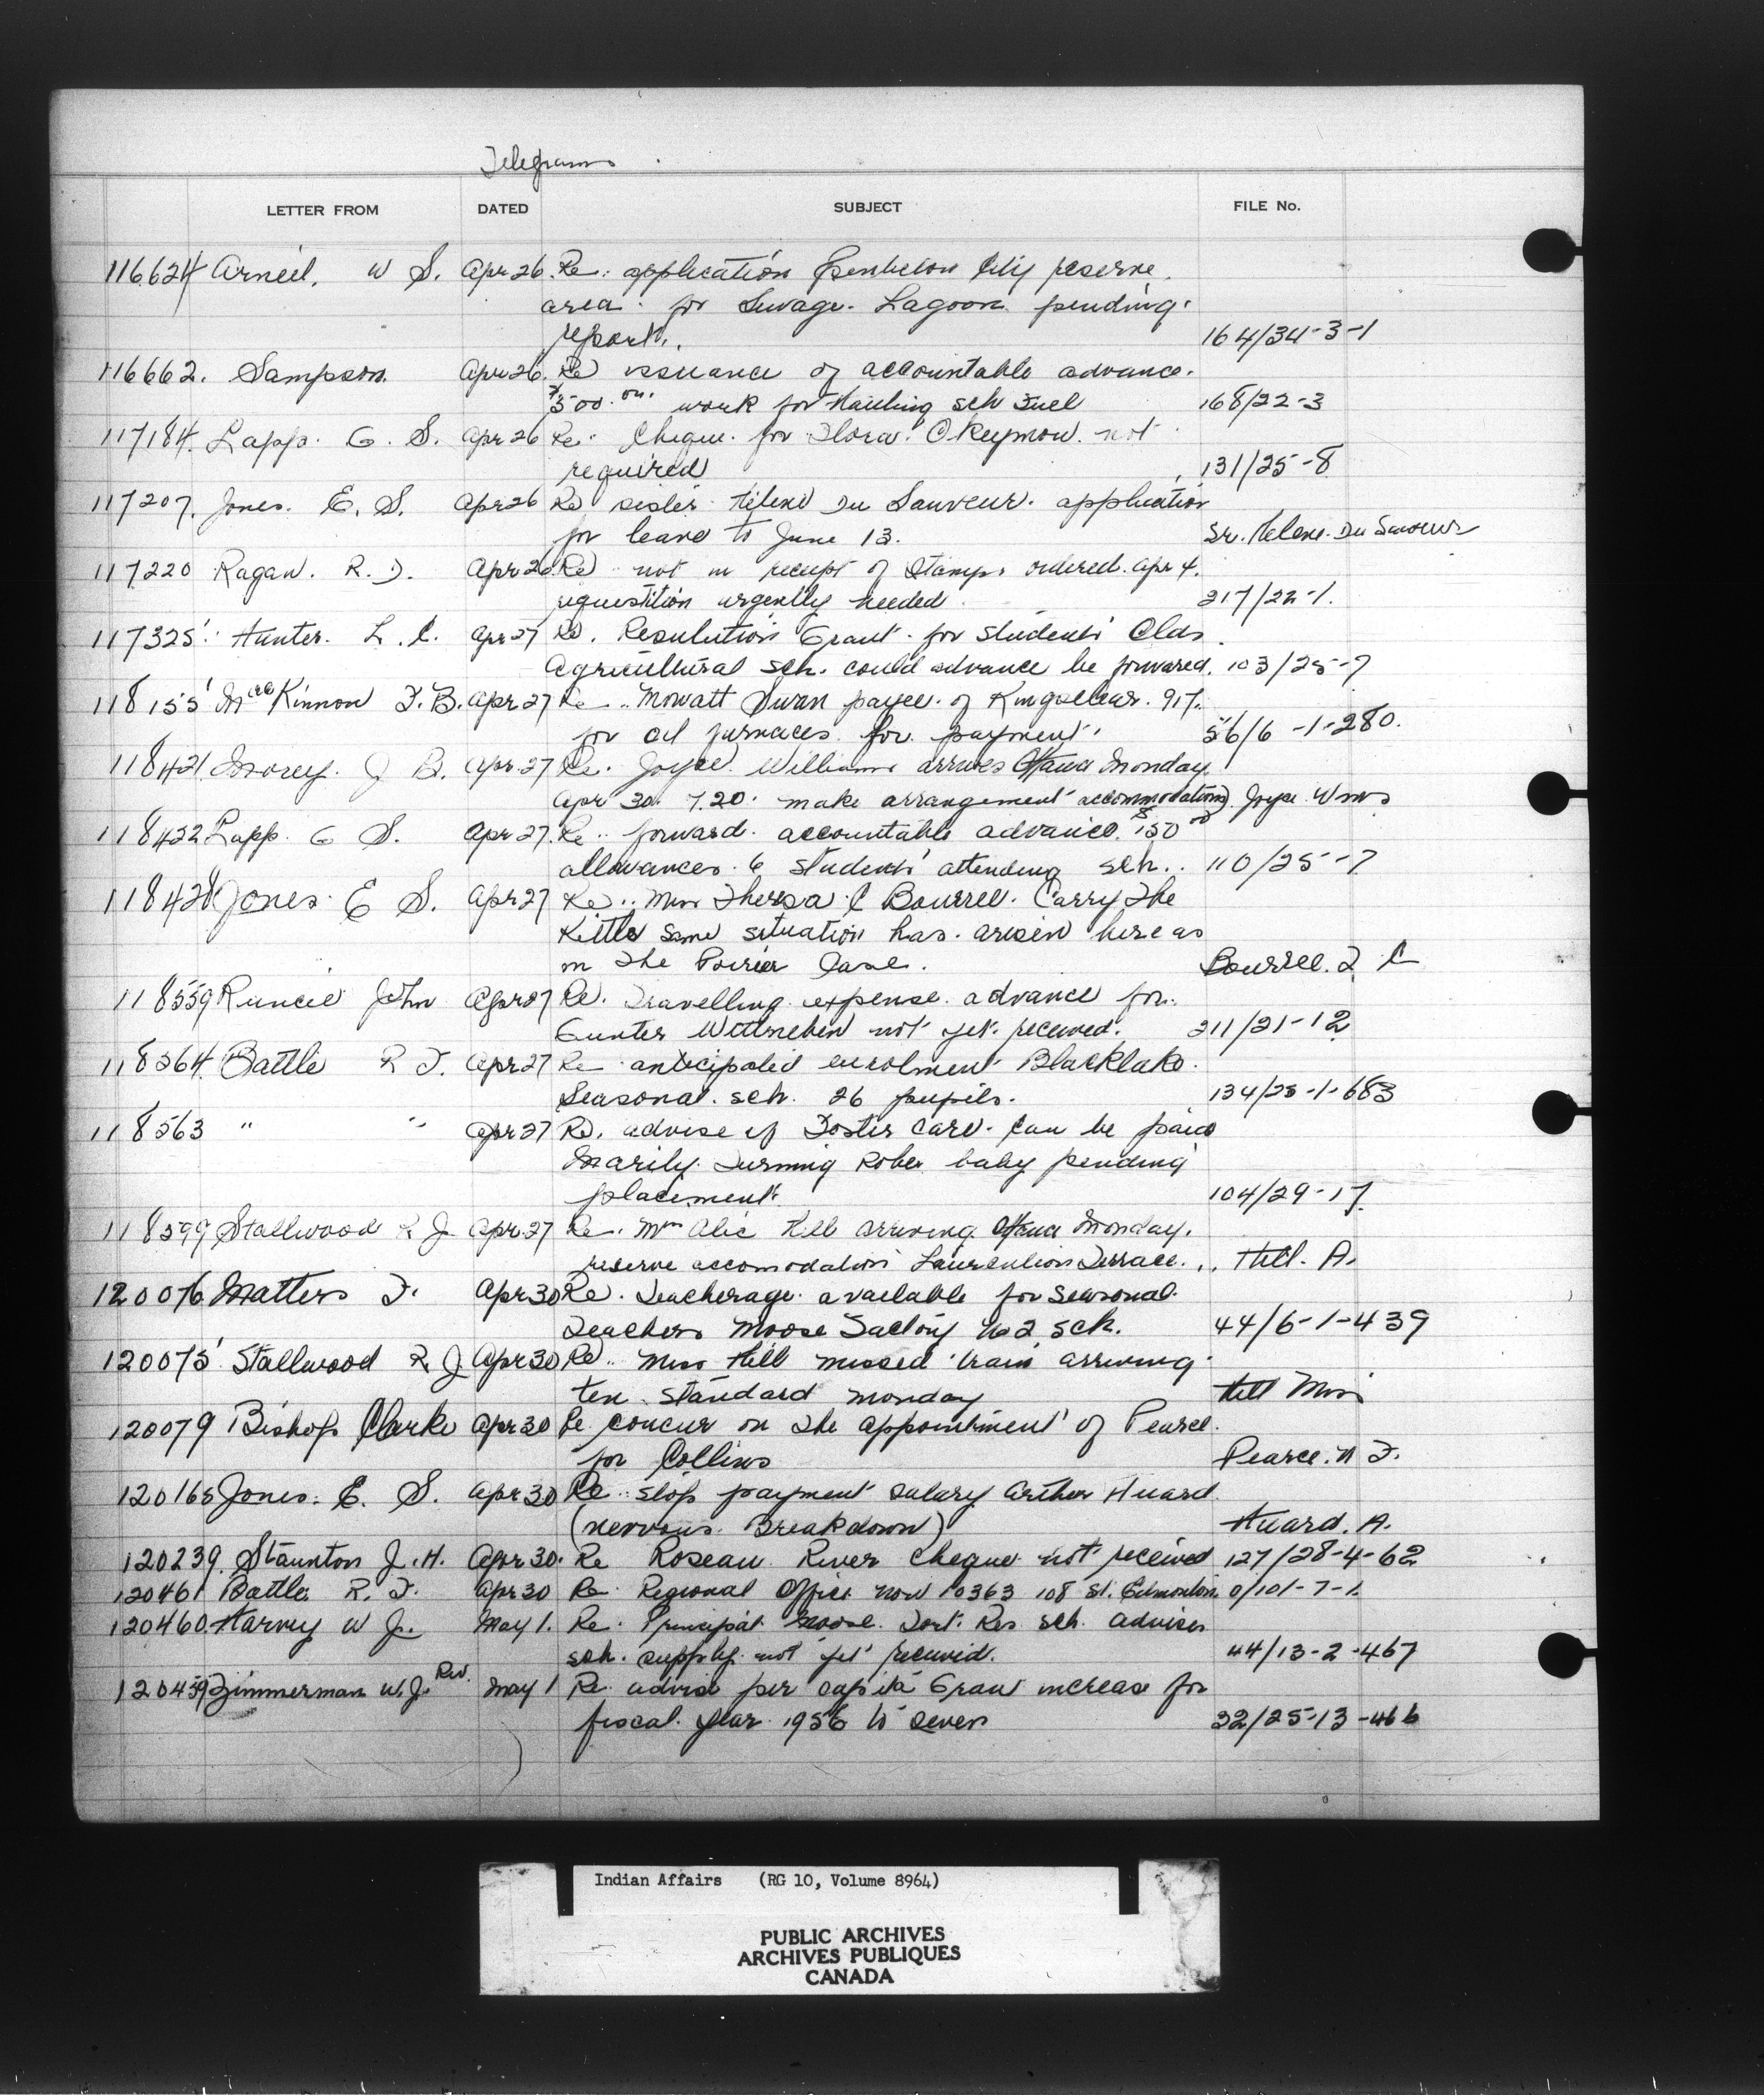 Telegrams
LETTER FROM DATED SUBJECT FILE No.
116624 Arneil. W S. Apr 26. Re: application City reserve
area for Sewage Lagoon pending
report. 164/34-3-1
116662. Sampson. Apr 26. Re issuance of accountable advance.
$500.00 work for Hauling sch Fuel 168/22-3
117184. Lapp. G. S. Apr 26 Re. Cheque for Flora Okeymow not
required 131/25-8
117207. Jones. E. S. Apr 26 Re sister Helene Du Sauveur. application
for leave to June 13. Sr. Helene Du Sauveur
117220 Ragan. R. D. Apr 26 Re not in receipt of stamps ordered Apr 4.
requestition urgently needed 217/22-1.
117325 Hunter. L. C. Apr 27 Re. Resolution Grant for students Olds
Agricultural sch. could advance be forwared. 103/25-7
118155 MacKinnon F. B. Apr 27 Re Mowatt Swan payee of Kingsclear. 917.
for oil furnaces for payment. 56/6-1-280.
118421 Morey. J B. Apr 27 Re. Joyce Williams arrives Ottawa Monday
Apr 30. 7.20. make arrangement accommodation Joyce Wms
118422 Lapp G S. Apr 27. Re forward accountable advance $150.00
allowances 6 students attending sch.. 110/25-7
118428 Jones E S. Apr 27 Re. Miss Theresa C Bourree. Carry The
Kettle same situation has arisen here as
in the Poirier Case. Bourree. T C
118559 Runcie John Apr 27 Re. Travelling expense advance for
Gunter not yet received. 211/21-12
118564 Battle R F. Apr 27 Re anticipated enrolment Blacklake
Seasonal sch. 26 pupils. 134/25-1-683
118563 " " Apr 27 Re. advise if Foster Care can be paid
Marily Turning Robe baby pending
placement 104/29-17
118599 Stallwood R J Apr 27 Re. Hill arriving Ottawa Monday.
reserve accomodation Laurentien Terrace. Hill. A.
120076 Matters F. Apr 30 Re. Teacherage available for Seasonal
Teachers Moose Factory No 2 sch. 44/6-1-439
120075 Stallwood R J Apr 30 Re Miss Hill missed train arriving
ten standard monday Hill Miss
120079 Bishop Clarke Apr 30 Re concur on the appointment of Pearce
for Collins Pearce. N F.
120165 Jones. E. S. Apr 30 Re stop payment salary Arthur Huard
(nervous Breakdown) Huard. A.
120239. Staunton J. H. Apr 30. Re Roseau River Cheque not received 127/28-4-62
120461 Battle R. F. Apr 30 Re Regional Office now 10363 108 St. Edmonton 0/101-7-1.
120460. Harvey W J. May 1. Re. Principal Moose Fort Res sch. advises
sch. supply not yet received. 44/13-2-467
120459 Zimmerman W. J. Rev. May 1 Re advise per capita Grant increase for
fiscal year 1956 to seven 32/25-13-466
Indian Affairs (RG 10, Volume 8964)
PUBLIC ARCHIVES
ARCHIVES PUBLIQUES
CANADA